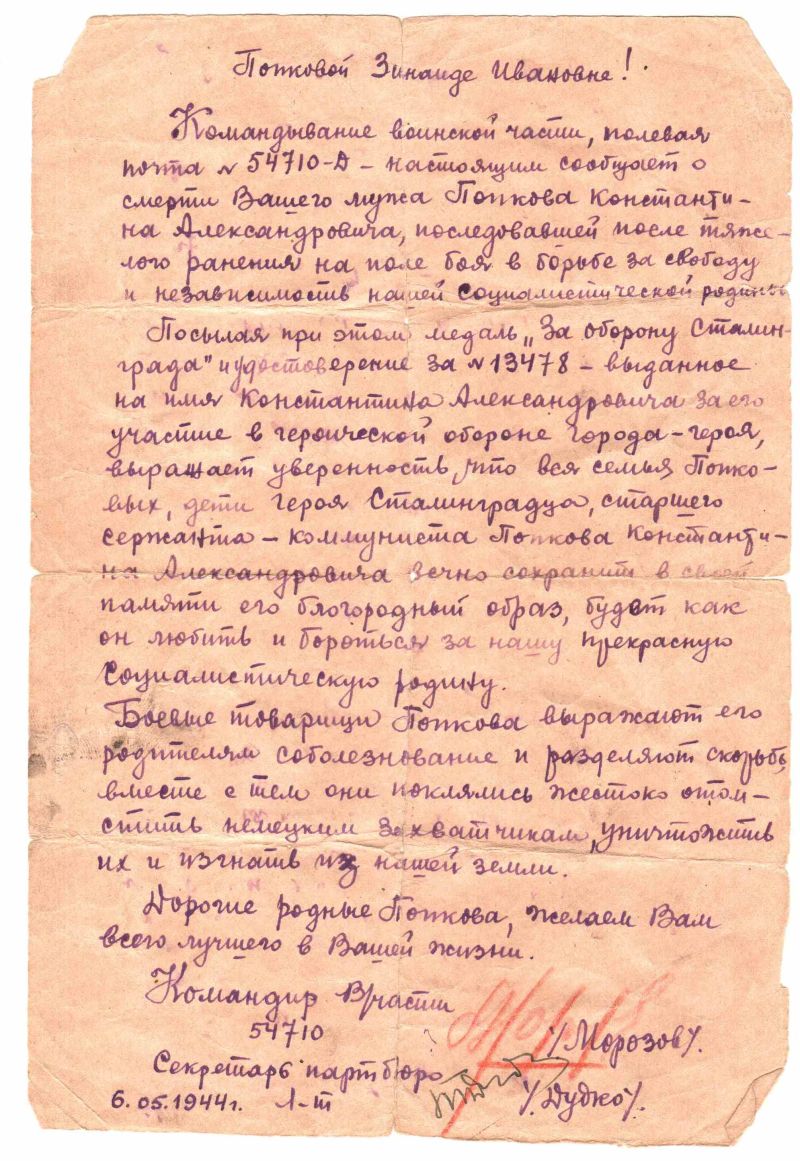 Попковой Зинаиде Ивановне!
Командывание воинской части, полевая
почта № 54710-Д – настоящим сообщает о
смерти Вашего мужа Попкова Константи-
на Александровича, последовавшей после тяже-
лого ранения на поле боя в борьбе за свободу
и независимость нашей социалистической родины
Посылая при этом медаль „За оборону Сталин-
града" и удостоверение за № 13478 – выданное
на имя Константина Александровича за его
участие в героической обороне города-героя,
выражает уверенность, что вся семья Попко-
вых, дети героя Сталинградца, старшего
сержанта – коммуниста Попкова Константи-
на Александровича вечно сохранит в своей
памяти его благородный образ, будет как
он любить и бороться за нашу прекрасную
социалистическую родину.
Боевые товарищи Попкова выражают его
родителям соболезнование и разделяют скорбь,
вместе с тем они поклялись жестоко отом-
стить немецким захватчикам, уничтожить
их и изгнать из нашей земли.
Дорогие родные Попкова, желаем Вам
всего лучшего в Вашей жизни.
Командир В/части
54710 /Морозов/.
Секретарь партбюро
6.05.1944г. л-т /Дудко/.